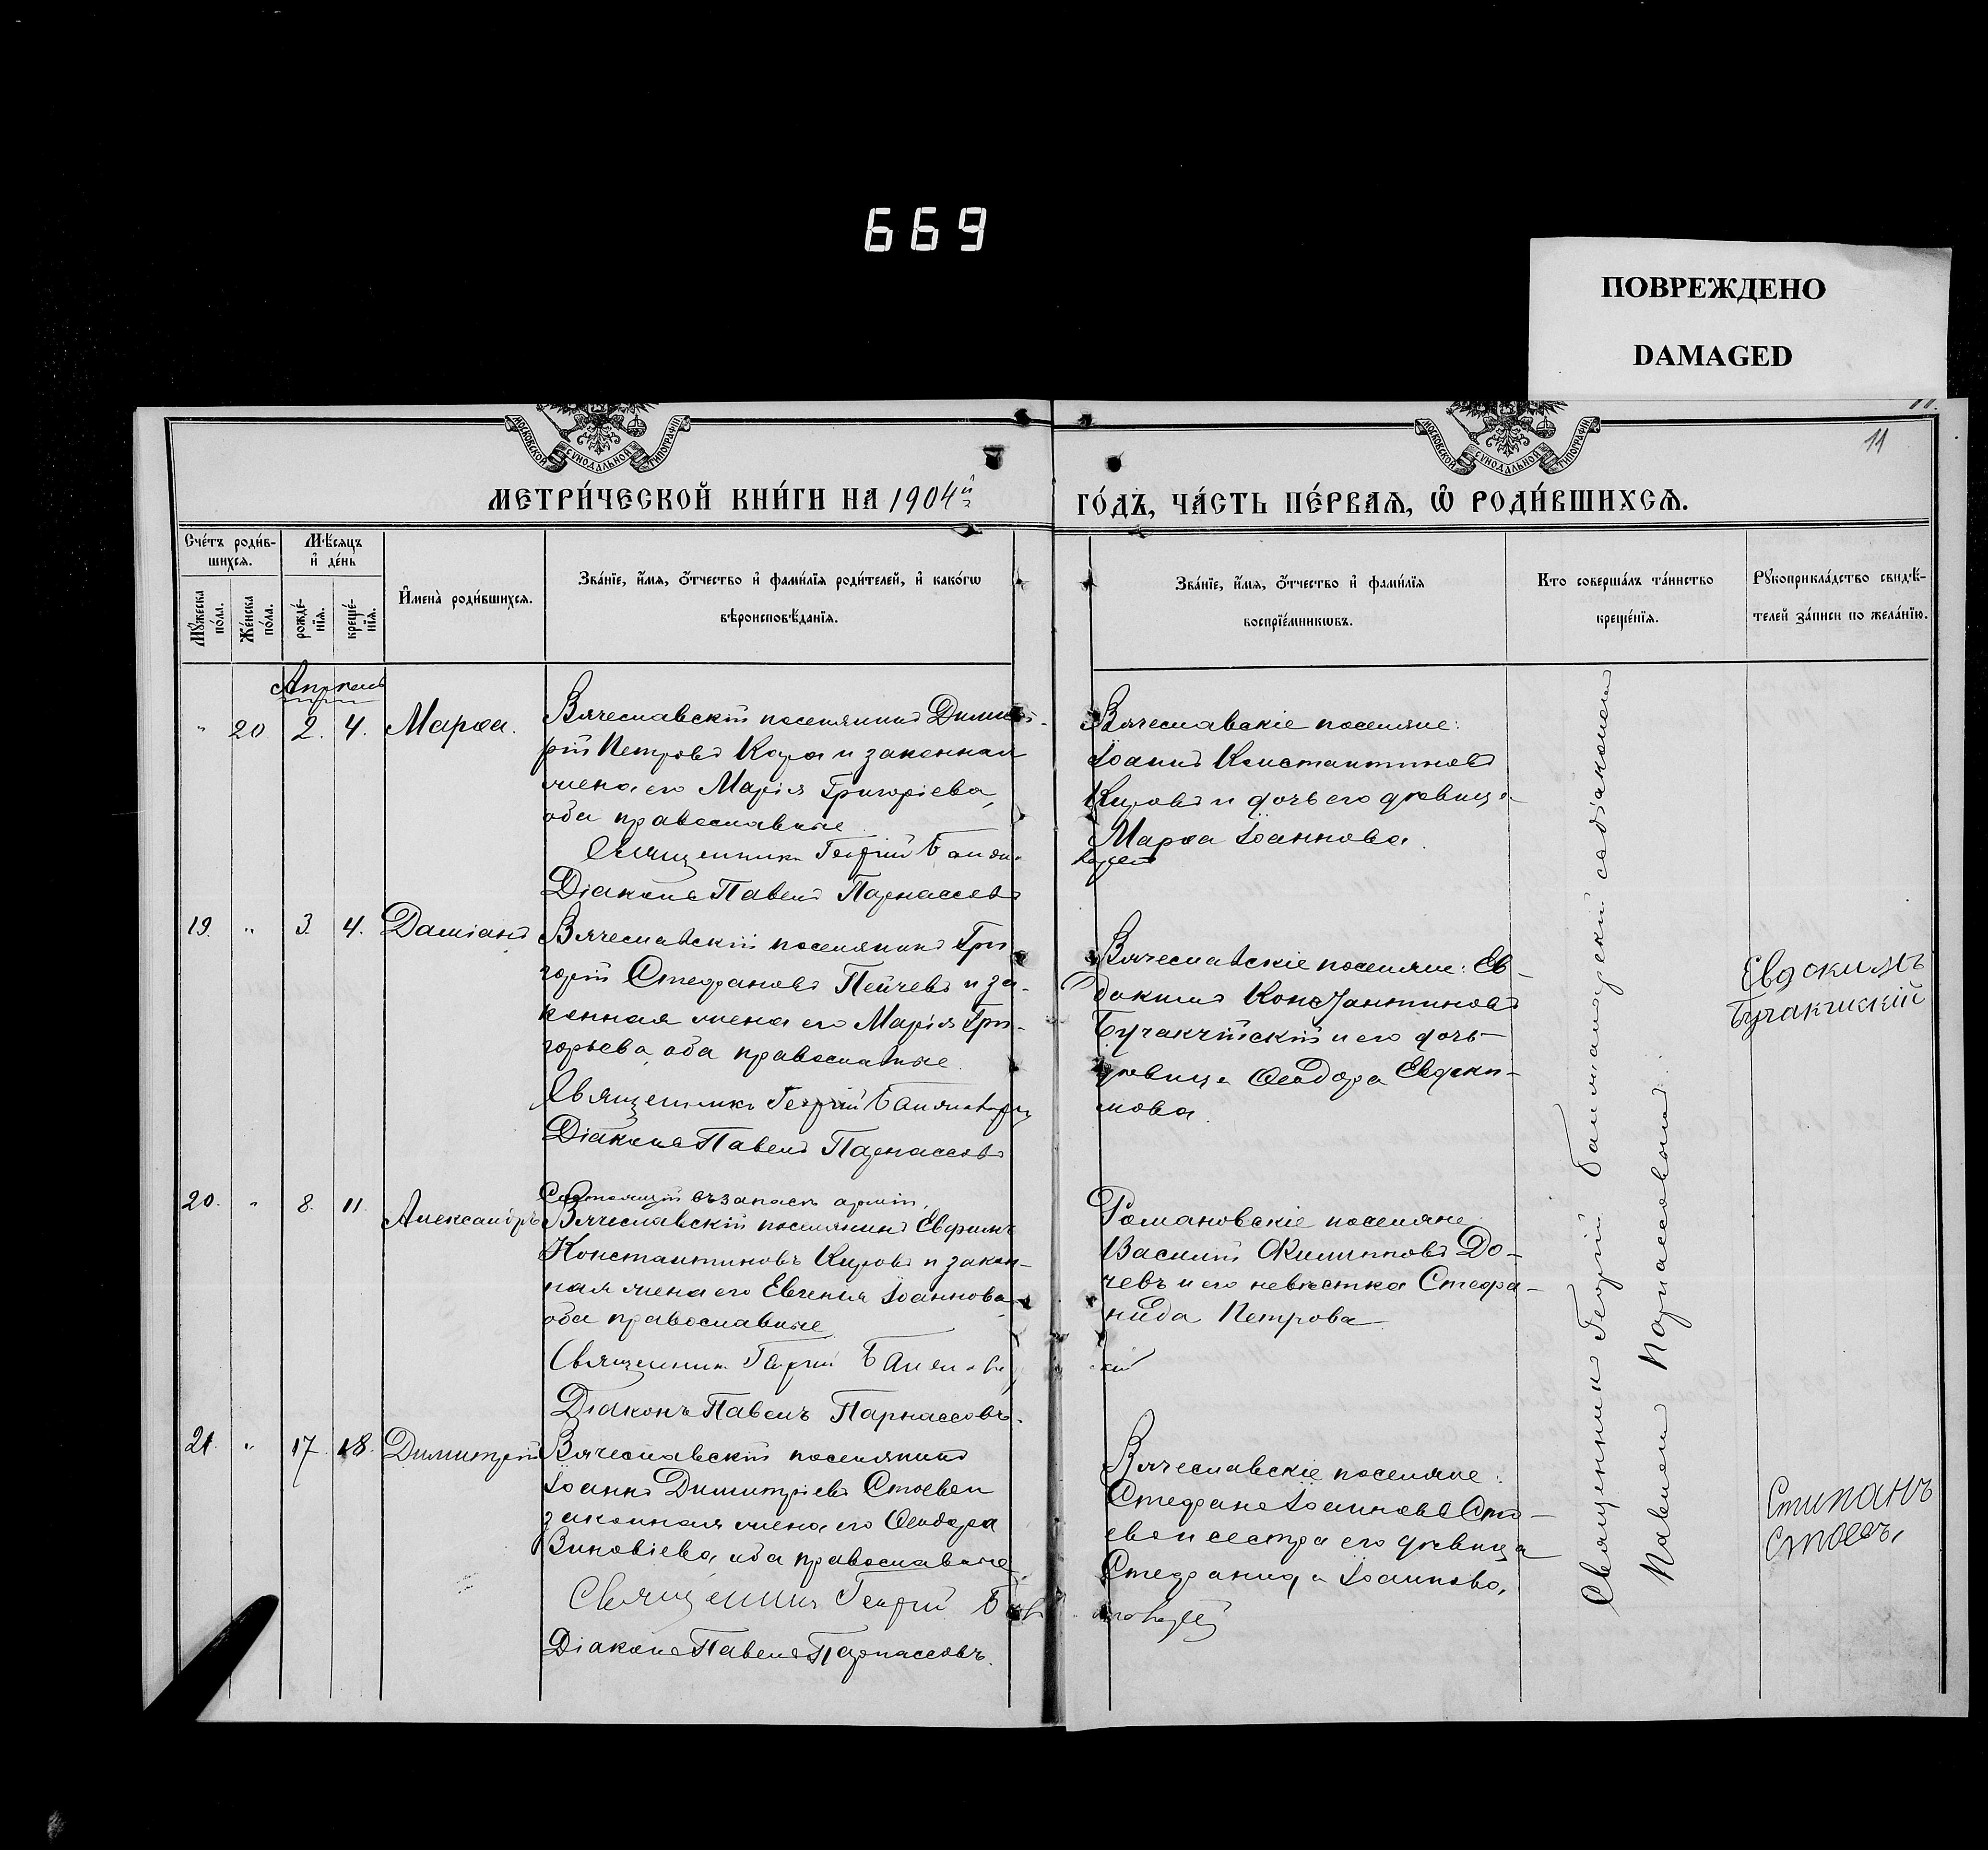 669
ПОВРЕЖДЕНО
DAMAGED
МОСКОВСКОЙ СѴНОДАЛЬНОЙ ТИПОГРАФІИ
МОСКОВСКОЙ СѴНОДАЛЬНОЙ ТИПОГРАФІИ
11
МЕТРИ́ЧЕСКОЙ КНИ́ГИ НА 1904й
ГО́ДЪ, ЧА́СТЬ ПЕ́РВАѦ, Ѡ РОДИ́ВШИХСѦ.
Сче́тъ роди́в-
шихсѧ.
Мꙋ́жеска по́ла.
Же́нска по́ла.
Мѣ́сѧцъ
и҆ де́нь
рожде́-
нїѧ.
креще́-
нїѧ.
И҆мена̀ роди́вшихсѧ.
Зва́нїе, и҆́мѧ, ѻ҆́тчество и҆ фами́лїѧ роди́телей, и҆ како́гѡ
вѣроисповѣ́данїѧ.
Зва́нїе, и҆́мѧ, ѻ҆́тчество и҆ фами́лїѧ
воспрїе́мникѡвъ.
Кто соверша́лъ та́инство
креще́нїѧ.
Рꙋкоприкла́дство свидѣ́-
телей за́писи по жела́нїю.
Апрель
" 20 2. 4. Марѳа.
Вячеславскій поселянинъ Димит-
рій Петровъ Кара и законная
жена его Марія Григоріева,
оба православные
Священникъ Георгій
Діаконъ Павелъ Парнассовъ
Вячеславскіе поселяне:
Іоаннъ Константиновъ
Кировъ и дочь его девица
Марѳа Іоаннова.
19. " 3. 4. Даміанъ
Вячеславскій поселянинъ Гри
горій Стефановъ Пейчевъ и за-
конная жена его Марія Гри-
горьева, оба православные.
Священникъ Георгій
Діаконъ Павелъ Парнассовъ
Вячеславскіе поселяне: Ев-
докимъ Константиновъ
Бучакчійскій и его дочь
девица Ѳеодора Евдоки-
мова.
Евдокимъ
Бучакчискій
20. " 8. 11. Александръ
Состоящій въ запасѣ арміи,
Вячеславскій поселянинъ Евфимъ
Константиновъ Кировъ и закон-
ная жена его Евгенія Іоаннова,
оба православные
Священникъ Георгій
Діаконъ Павелъ Парнассовъ.
Романовскіе поселяне
Василій Филипповъ До-
чевъ и его невѣстка Стефа-
нида Петрова
21. " 17. 18. Димитрій
Вячеславскій поселянинъ
Іоаннъ Димитріевъ Стоевъ и
законная жена его Ѳеодора
Зиновіева, оба православные
Священникъ Георгій
Діаконъ Павелъ Парнассовъ.
Вячеславскіе поселяне:
Стефанъ Іоанновъ Сто-
евъ и сестра его девица
Стефанида Іоаннова,
Стипанъ
Стоевъ,
Священникъ Георгій съ діакономъ
Павломъ Парнассовымъ.